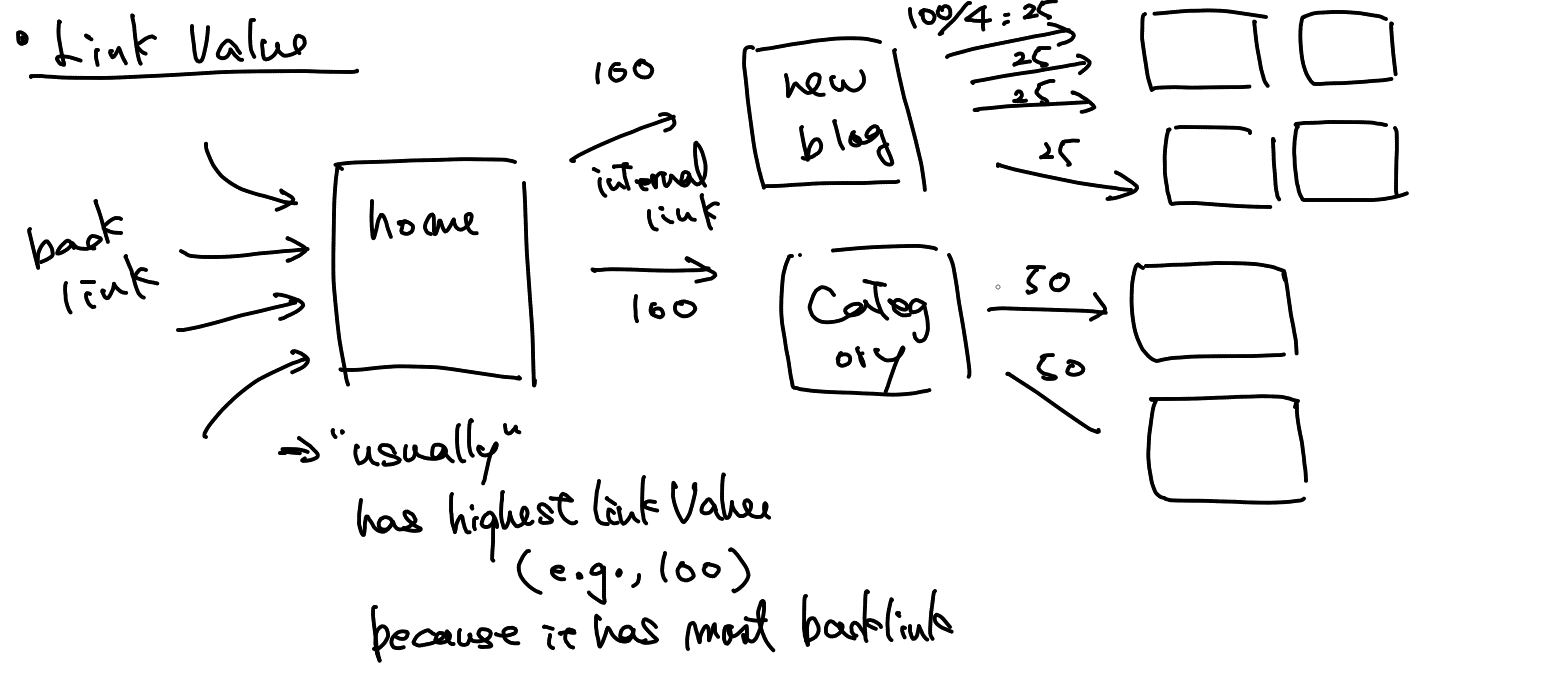 • Link Value
back
link
home
100
internal
link
100
new
blog
100/4 = 25
25
25
25
Categ
ory
50
50
→ "usually"
has highest link Value
(e.g., 100)
because it has most backlink